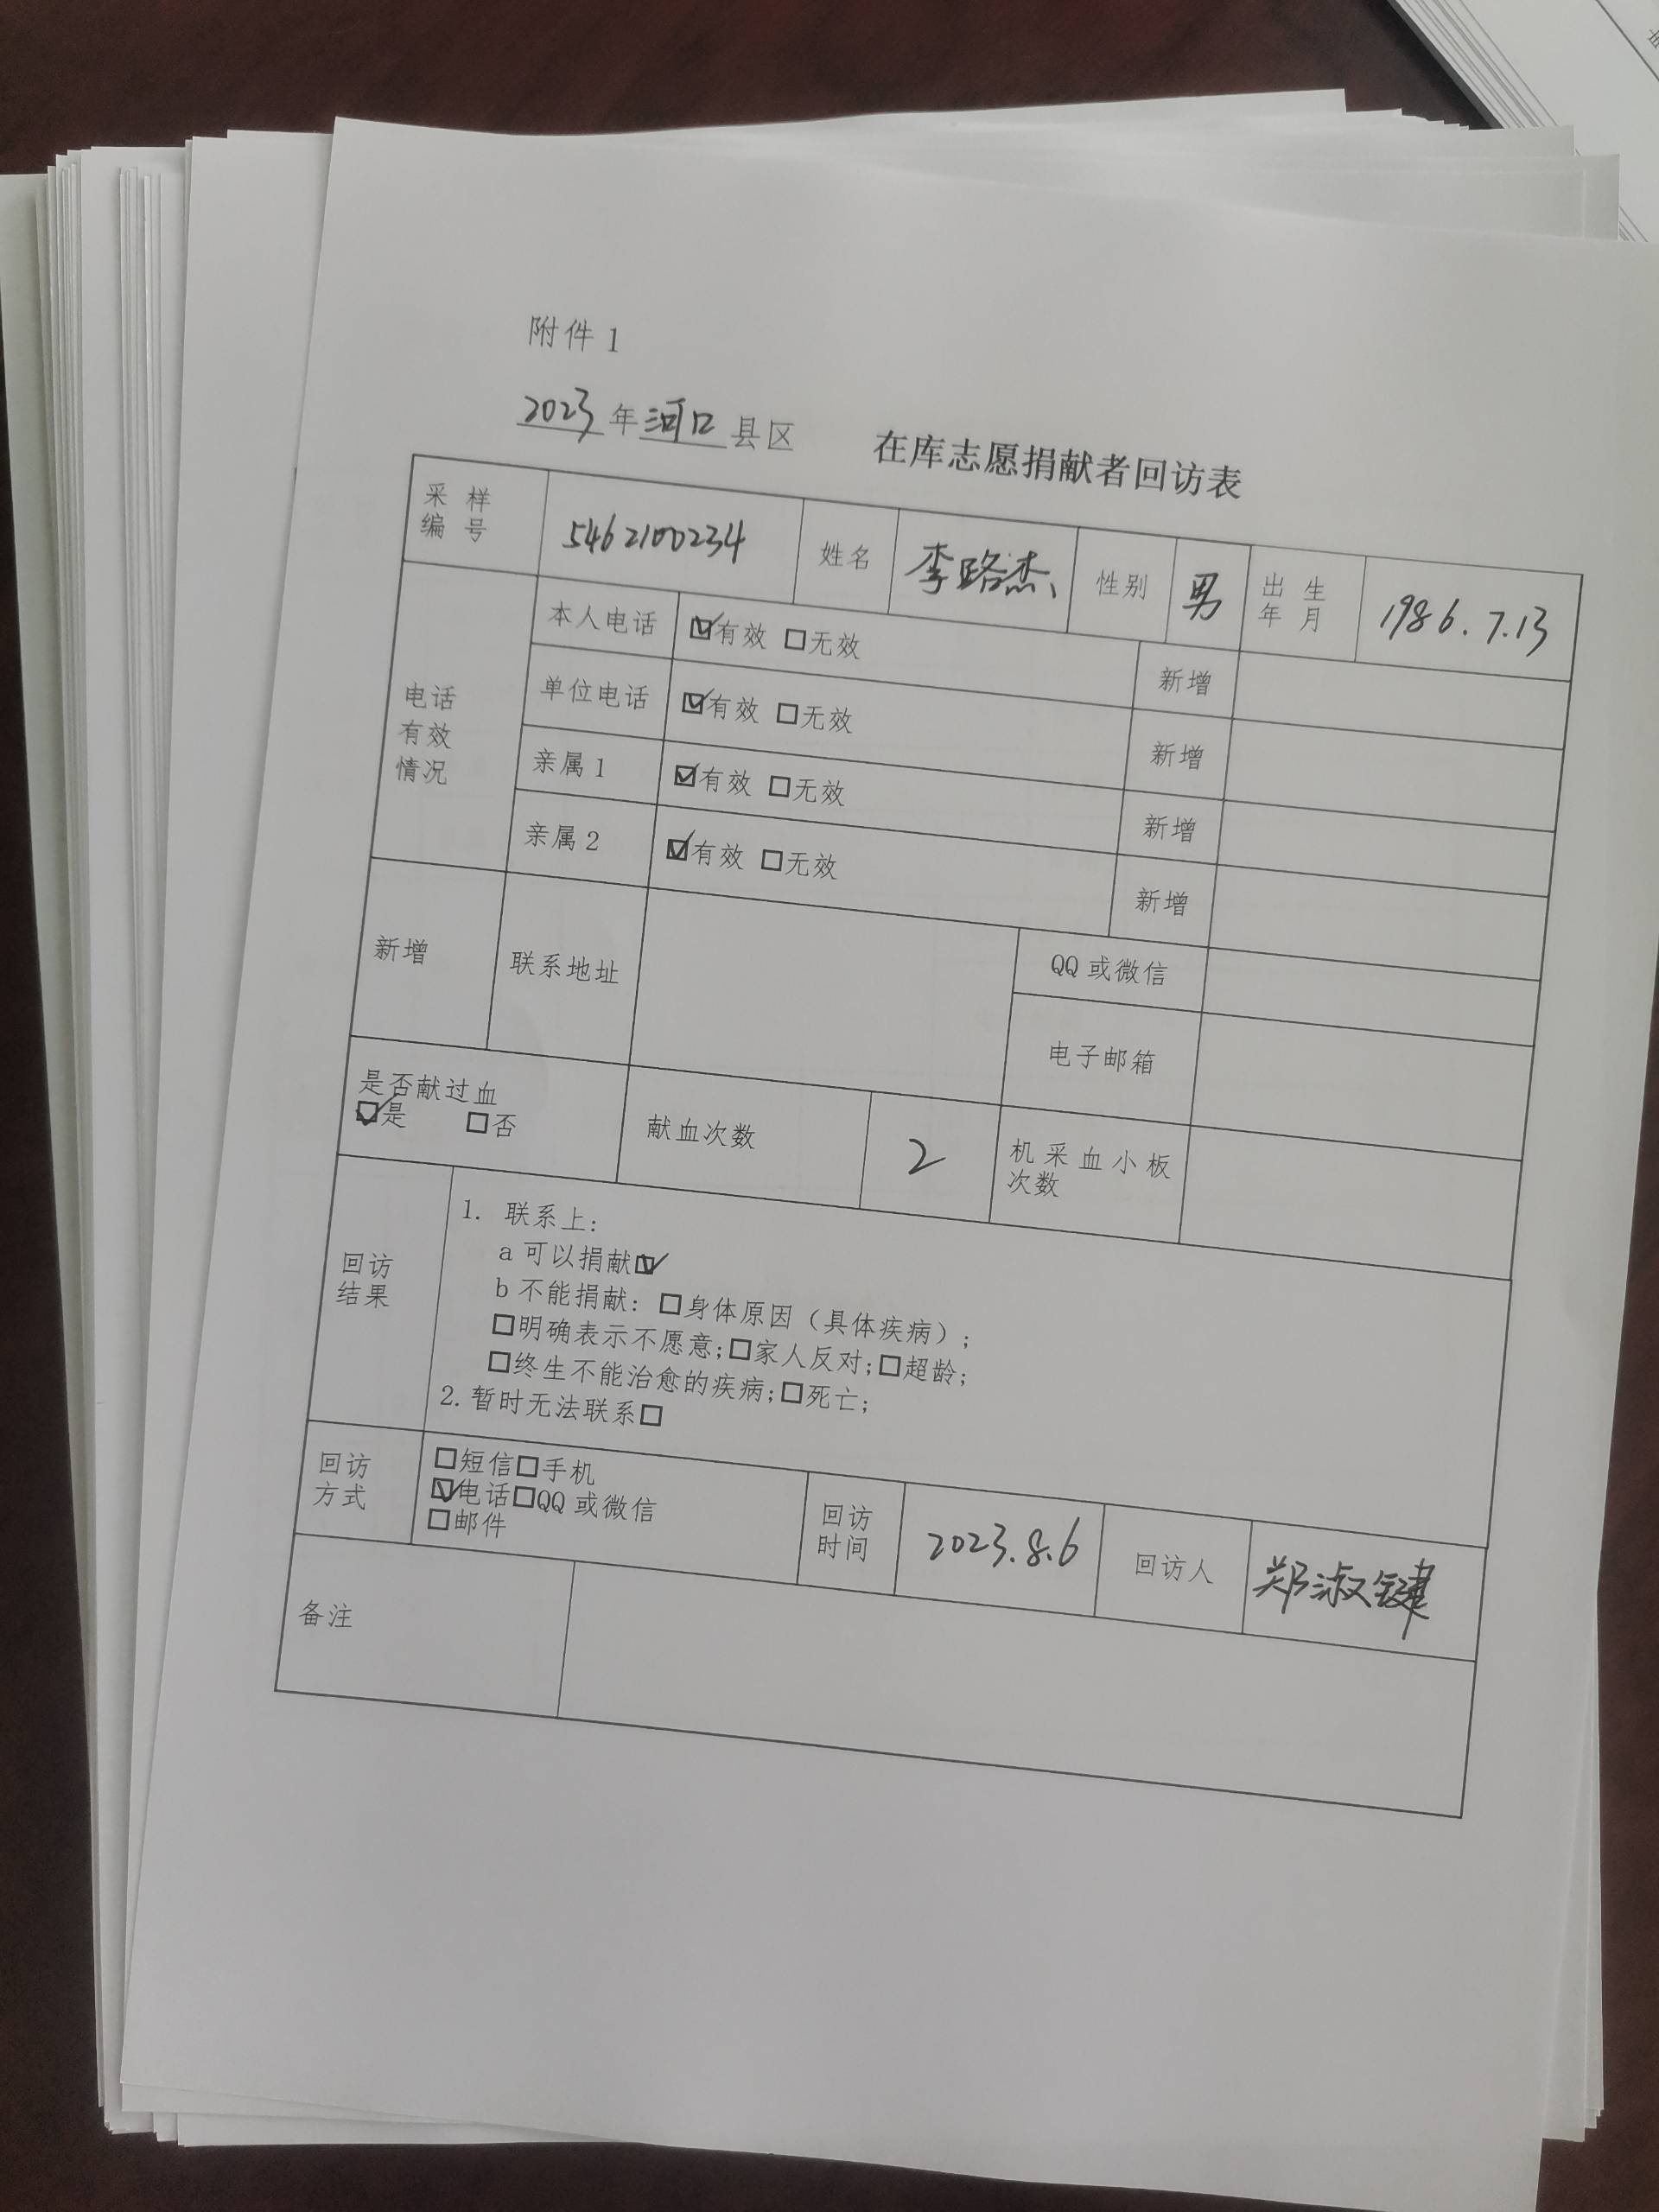 附件1
2023年河口县区 在库志愿捐献者回访表
采样编号 5462100234 姓名 李路杰 性别 男 出生年月 1986.7.13
电话有效情况
本人电话 ☑有效 □无效 新增
单位电话 ☑有效 □无效 新增
亲属1 ☑有效 □无效 新增
亲属2 ☑有效 □无效 新增
新增 联系地址 QQ或微信
电子邮箱
是否献过血
☑是 □否 献血次数 2 机采血小板次数
回访结果
1. 联系上:
a 可以捐献☑
b 不能捐献: □身体原因（具体疾病）;
□明确表示不愿意;□家人反对;□超龄;
□终生不能治愈的疾病;□死亡;
2.暂时无法联系□
回访方式
□短信□手机
☑电话□QQ或微信
□邮件
回访时间 2023.8.6 回访人 郑淑键
备注